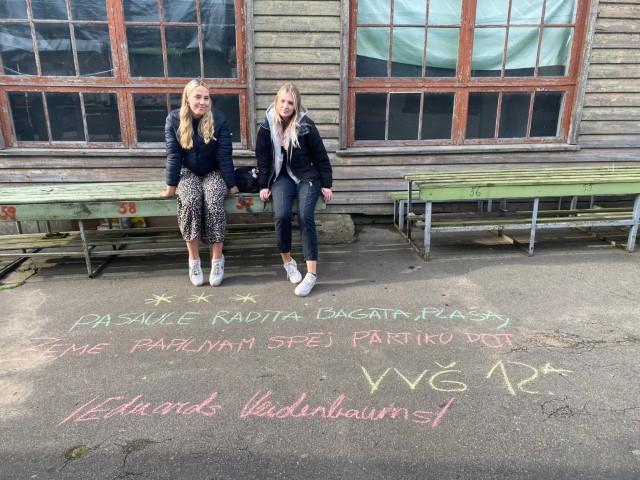 59 58 57 56 55
PASAULE RADĪTA BAGĀTA, PLAŠA,
ZEME PAPILNAM SPĒJ PĀRTIKU DOT
VVĢ 12ᵃ
/Eduards Veidenbaums/